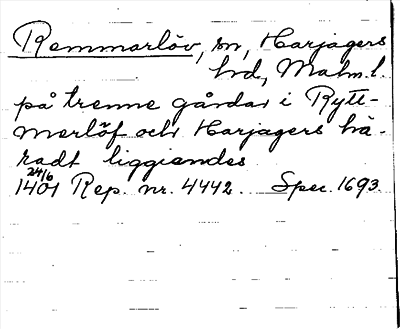 Remmarlöv, sn, Harjagers
hd, Malm. l.
på trenne gårdar i Rytt-
merlöf och Harjagers hä-
radt liggiandes
24/6
1401 Rep. nr. 4442. Spec. 1693.